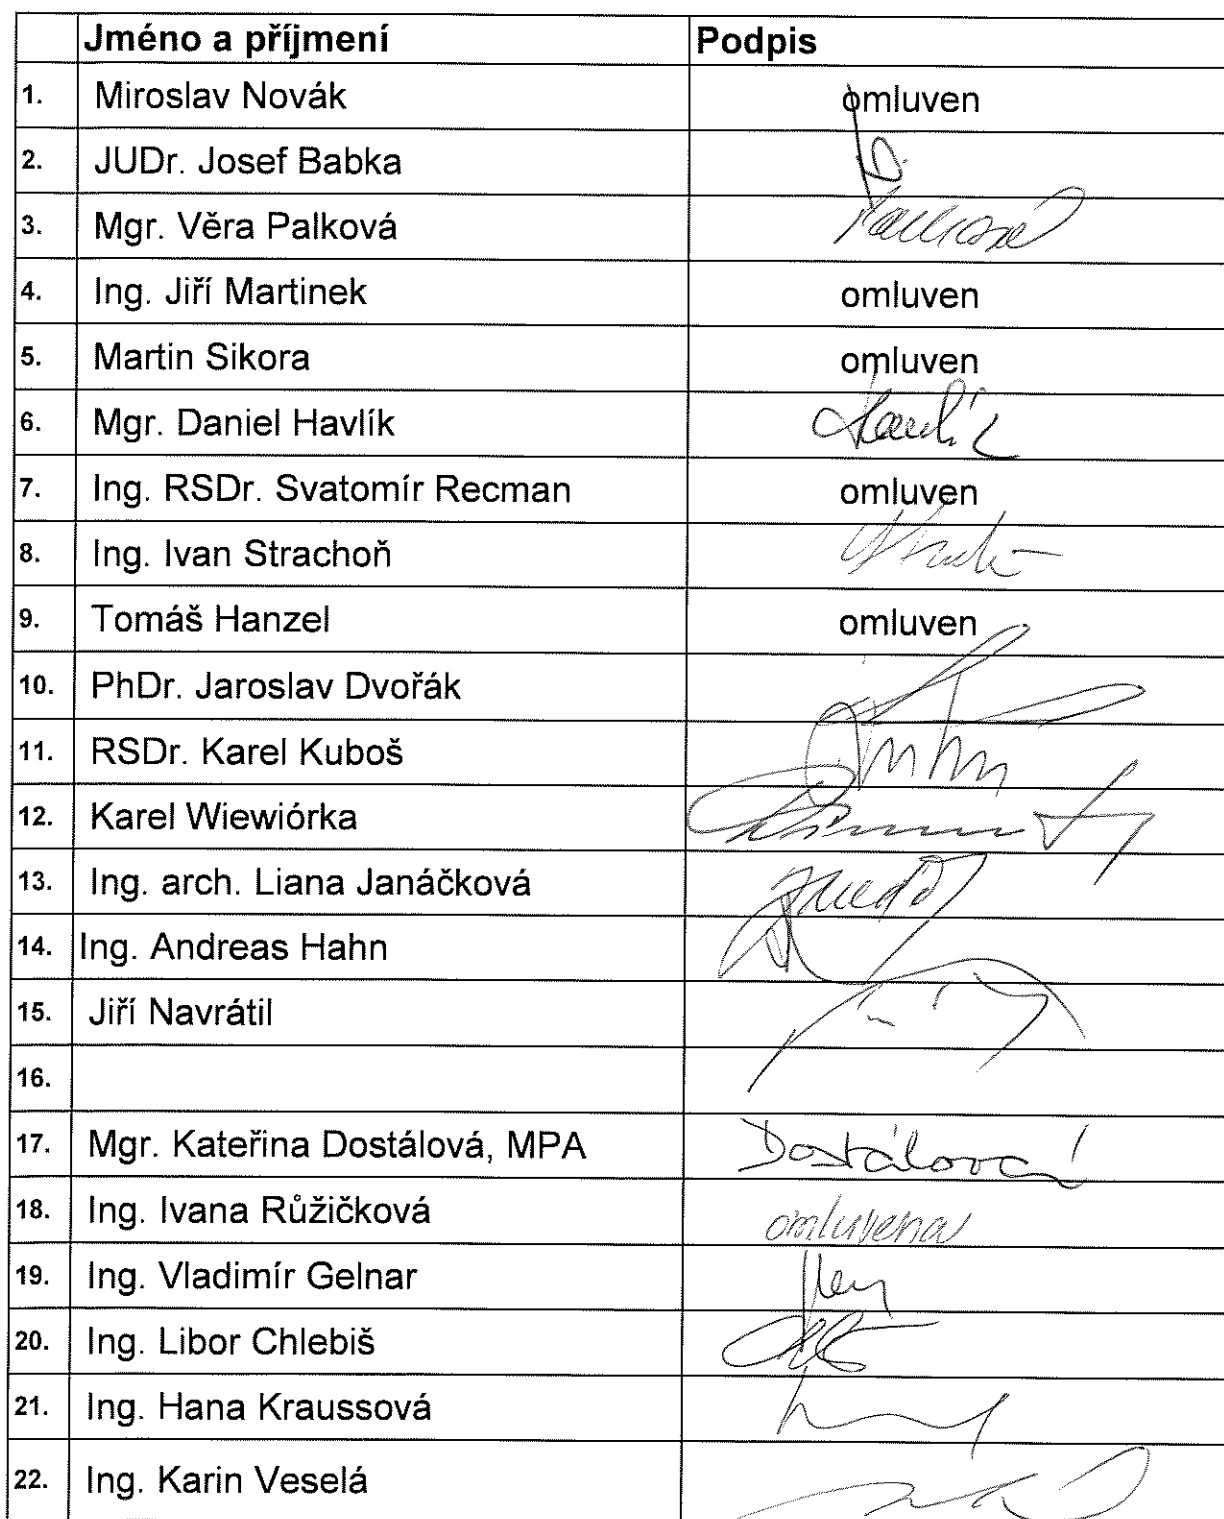 Jméno a příjmení Podpis
1. Miroslav Novák omluven
2. JUDr. Josef Babka
3. Mgr. Věra Palková
4. Ing. Jiří Martinek omluven
5. Martin Sikora omluven
6. Mgr. Daniel Havlík
7. Ing. RSDr. Svatomír Recman omluven
8. Ing. Ivan Strachoň
9. Tomáš Hanzel omluven
10. PhDr. Jaroslav Dvořák
11. RSDr. Karel Kuboš
12. Karel Wiewiórka
13. Ing. arch. Liana Janáčková
14. Ing. Andreas Hahn
15. Jiří Navrátil
16.
17. Mgr. Kateřina Dostálová, MPA Dostálová
18. Ing. Ivana Růžičková omluvena
19. Ing. Vladimír Gelnar
20. Ing. Libor Chlebiš
21. Ing. Hana Kraussová
22. Ing. Karin Veselá